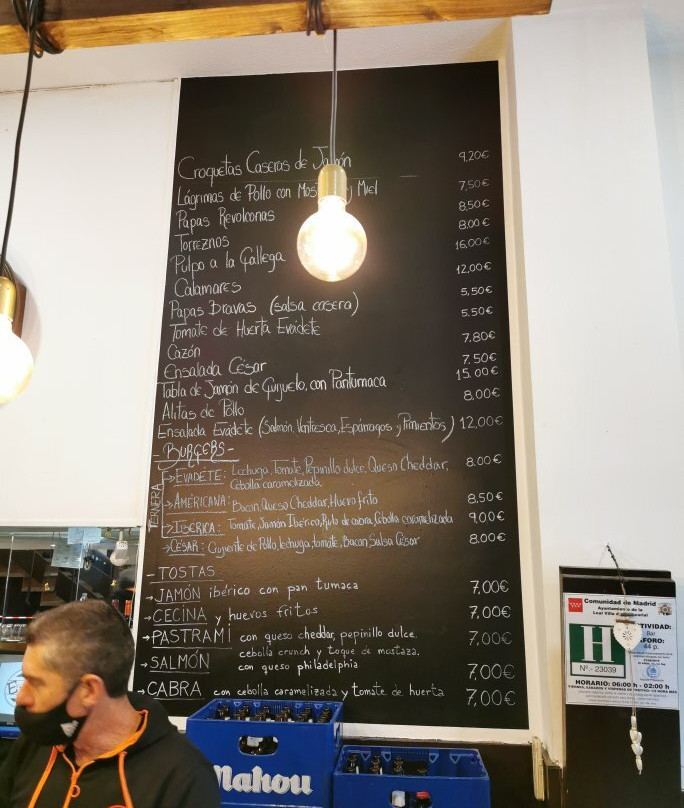 Croquetas Caseras de Jamón 9,20€
Lágrimas de Pollo con y Miel 7,50€
Papas Revolconas 8,50€
Torreznos 8,00€
Pulpo a la Gallega 16,00€
Calamares 12,00€
Papas Bravas (salsa casera) 5,50€
Tomate de Huerta Evádete 5.50€
Cazón 7,80€
Ensalada César 7,50€
Tabla de Jamón de Guijuelo, con Pantumaca 15,00€
Alitas de Pollo 8,00€
Ensalada Evádete (Salmón, Ventresca, Espárragos y Pimientos) 12,00€
- BURGERS -
TERNERA
→ EVÁDETE: Lechuga, Tomate, Pepinillo dulce, Queso Cheddar, 8.00€
Cebolla caramelizada
→ AMERICANA: Bacon, Queso Cheddar, Huevo frito 8.50€
→ IBÉRICA: Tomate, Jamón Ibérico, Rulo de cabra, Cebolla caramelizada 9,00€
→ CÉSAR: Crujiente de Pollo, lechuga, tomate, Bacon, Salsa César 8.00€
- TOSTAS
→ JAMÓN ibérico con pan tumaca 7,00€
→ CECINA y huevos fritos 7,00€
→ PASTRAMI con queso cheddar, pepinillo dulce, 7,00€
cebolla crunch y toque de mostaza.
→ SALMÓN con queso philadelphia 7,00€
→ CABRA con cebolla caramelizada y tomate de huerta 7,00€
Mahou
Comunidad de Madrid
Ayuntamiento de la
H
Nº.- 23039
Bar
44 p.
HORARIO: 06:00 h - 02:00 h